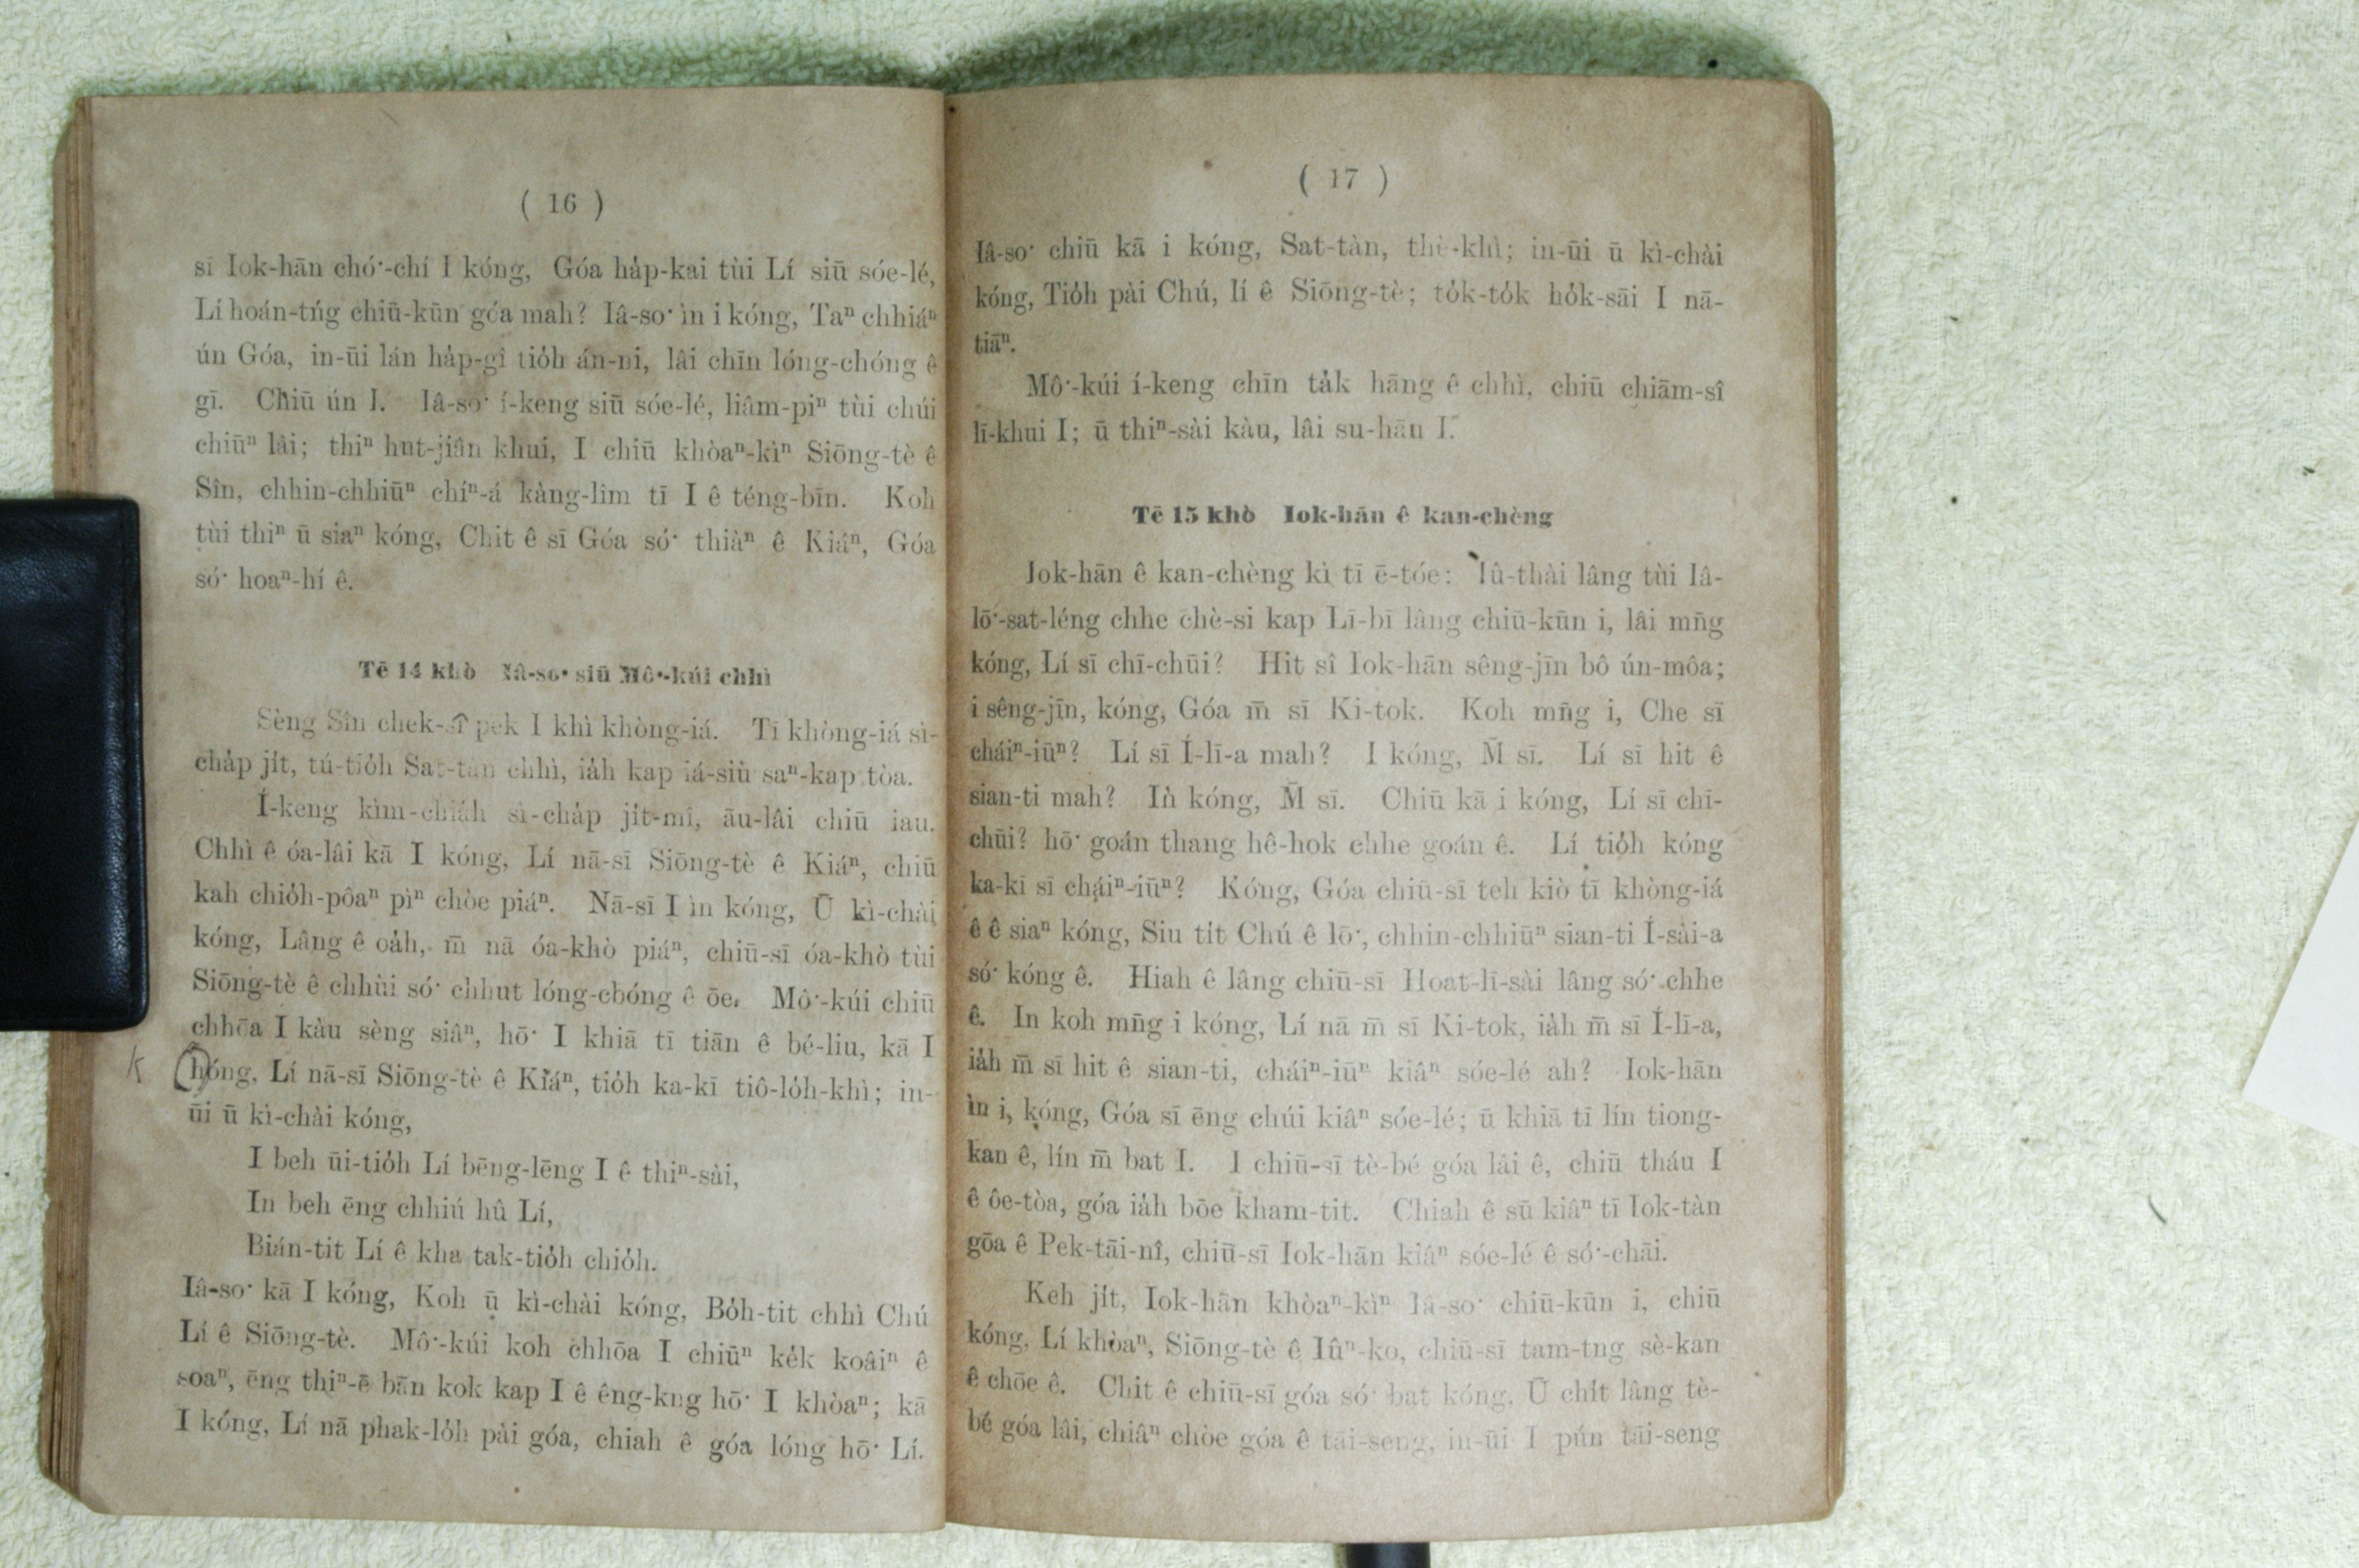 ( 16 )
sī Iok-hān chó͘-chí I kóng, Góa ha̍p-kai tùi Lí siū sóe-lé,
Lí hoán-tńg chiū-kūn góa mah? Iâ-so͘ ìn i kóng, Taⁿ chhiáⁿ
ún Góa, in-ūi lán ha̍p-gî tio̍h án-ni, lâi chīn lóng-chóng ê
gī. Chiū ún I. Iâ-so͘ í-keng siū sóe-lé, liâm-piⁿ tùi chúi
chiūⁿ lâi; thiⁿ hut-jiân khui, I chiū khòaⁿ-kìⁿ Siōng-tè ê
Sîn, chhin-chhiūⁿ chíⁿ-á kàng-lîm tī I ê téng-bīn. Koh
tùi thiⁿ ū siaⁿ kóng, Chit ê sī Góa só͘ thiàⁿ ê Kiáⁿ, Góa
só͘ hoaⁿ-hí ê.
Tē 14 khò Iâ-so͘ siū Mô͘-kúi chhì
Sèng Sîn chek-sî pek I khì khòng-iá. Tī khòng-iá sì-
cha̍p ji̍t, tú-tio̍h Sat-tàn chhì, ia̍h kap iá-siù saⁿ-kap tòa.
Í-keng kìm-chia̍h sì-cha̍p ji̍t-mî, āu-lâi chiū iau.
Chhì ê óa-lâi kā I kóng, Lí nā-sī Siōng-tè ê Kiáⁿ, chiū
kah chio̍h-pôaⁿ pìⁿ chòe piáⁿ. Nā-sī I ìn kóng, Ū kì-chài
kóng, Lâng ê oa̍h, m̄ nā óa-khò piáⁿ, chiū-sī óa-khò tùi
Siōng-tè ê chhùi só͘ chhut lóng-chóng ê ōe. Mô͘-kúi chiū
chhōa I kàu sèng siâⁿ, hō͘ I khiā tī tiān ê bé-liu, kā I
k hóng, Lí nā-sī Siōng-tè ê Kiáⁿ, tio̍h ka-kī tiô-lo̍h-khì; in-
ūi ū kì-chài kóng,
I beh ūi-tio̍h Lí bēng-lēng I ê thiⁿ-sài,
In beh ēng chhiú hû Lí,
Bián-tit Lí ê kha tak-tio̍h chio̍h.
Iâ-so͘ kā I kóng, Koh ū kì-chài kóng, Bo̍h-tit chhì Chú
Lí ê Siōng-tè. Mô͘-kúi koh chhōa I chiūⁿ ke̍k koâiⁿ ê
soaⁿ, ēng thiⁿ-ē bān kok kap I ê êng-kng hō͘ I khòaⁿ; kā
I kóng, Lí nā phak-lo̍h pài góa, chiah ê góa lóng hō͘ Lí.
( 17 )
Iâ-so͘ chiū kā i kóng, Sat-tàn, thè-khì; in-ūi ū kì-chài
kóng, Tio̍h pài Chú, lí ê Siōng-tè; to̍k-to̍k ho̍k-sāi I nā-
tiāⁿ.
Mô͘-kúi í-keng chīn ta̍k hāng ê chhì, chiū chiām-sî
lī-khui I; ū thiⁿ-sài kàu, lâi su-hāu I.
Tē 15 khò Iok-hān ê kan-chèng
Iok-hān ê kan-chèng kì tī ē-tóe: Iû-thài lâng tùi Iâ-
lō͘-sat-léng chhe chè-si kap Lī-bī lâng chiū-kūn i, lâi mn̄g
kóng, Lí sī chī-chūi? Hit sî Iok-hān sêng-jīn bô ún-môa;
i sêng-jīn, kóng, Góa m̄ sī Ki-tok. Koh mn̄g i, Che sī
cháiⁿ-iūⁿ? Lí sī Í-lī-a mah? I kóng, M̄ sī. Lí sī hit ê
sian-ti mah? Ìn kóng, M̄ sī. Chiū kā i kóng, Lí sī chī-
chūi? hō͘ goán thang hê-hok chhe goán ê. Lí tio̍h kóng
ka-kī sī cháiⁿ-iūⁿ? Kóng, Góa chiū-sī teh kiò tī khòng-iá
ê ê siaⁿ kóng, Siu ti̍t Chú ê lō͘, chhin-chhiūⁿ sian-ti Í-sài-a
só͘ kóng ê. Hiah ê lâng chiū-sī Hoat-lī-sài lâng só͘ chhe
ê. In koh mn̄g i kóng, Lí nā m̄ sī Ki-tok, ia̍h m̄ sī Í-lī-a,
ia̍h m̄ sī hit ê sian-ti, cháiⁿ-iūⁿ kiâⁿ sóe-lé ah? Iok-hān
ìn i, kóng, Góa sī ēng chúi kiâⁿ sóe-lé; ū khiā tī lín tiong-
kan ê, lín m̄ bat I. I chiū-sī tè-bé góa lâi ê, chiū tháu I
ê ôe-tòa, góa ia̍h bōe kham-tit. Chiah ê sū kiâⁿ tī Iok-tàn
gōa ê Pek-tāi-nî, chiū-sī Iok-hān kiâⁿ sóe-lé ê só͘-chāi.
Keh ji̍t, Iok-hān khòaⁿ-kìⁿ Iâ-so͘ chiū-kūn i, chiū
kóng, Lí khòaⁿ, Siōng-tè ê Iûⁿ-ko, chiū-sī tam-tng sè-kan
ê chōe ê. Chit ê chiū-sī góa só͘ bat kóng, Ū chi̍t lâng tè-
bé góa lâi, chiâⁿ chòe góa ê tāi-seng, in-ūi I pún tāi-seng